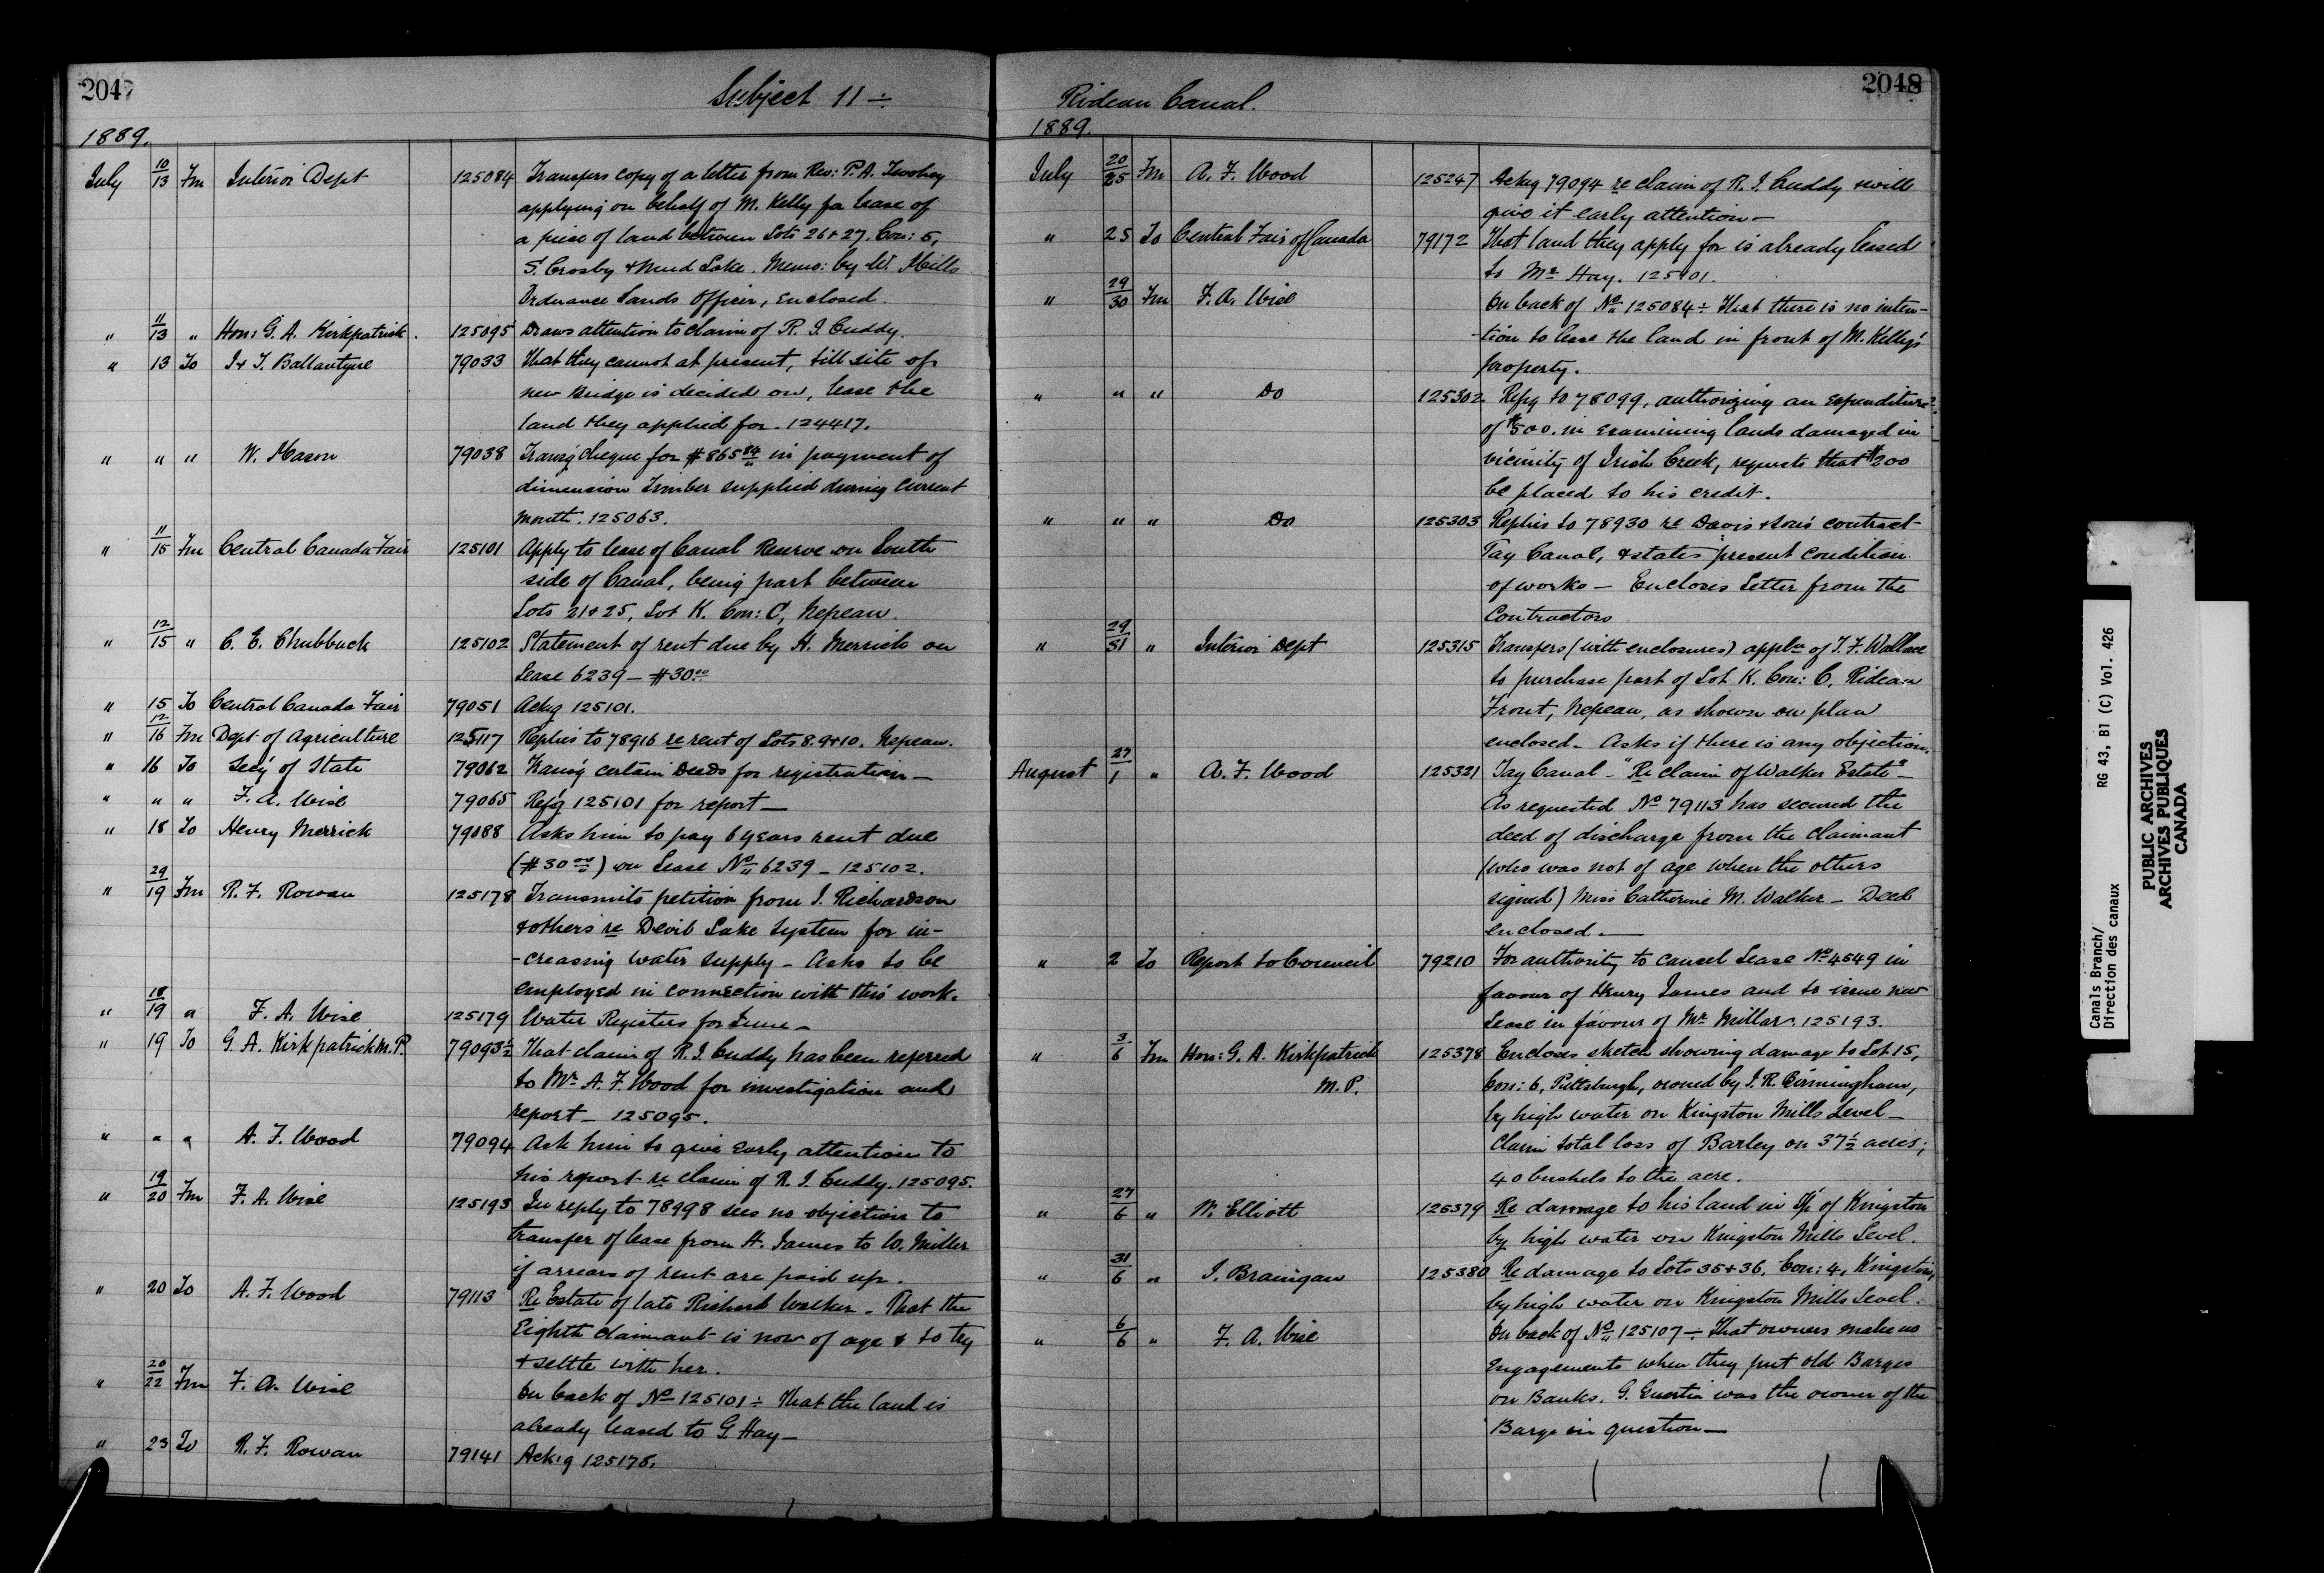 2047
Subject 11 ÷
1889.
July 10/13 Fm Interior Dept 125084 Transfers copy of a letter from Rev: P. A. Twohey
applying on behalf of M. Kelly for lease of
a piece of land between Lots 26 & 27. Con: 5,
S. Crosby & Mud Lake. Memo: by W. Mills
Ordnance Lands Officer, enclosed.
" 11/13 " Hon: G. A. Kirkpatrick. 125095 Draws attention to claim of R. J. Cuddy.
" 13 To J & T. Ballantyne 79033 That they cannot at present, till site of
new Bridge is decided on, lease the
land they applied for. 124417.
" " " W. Mason 79038 Transg cheque for $865 84 in payment of
dimension Timber supplied during current
month. 125063.
" 11/15 Fm Central Canada Fair 125101 Apply to lease of Canal Reserve on South
side of Canal, being part between
Lots 21 & 25, Lot K. Con: C, Nepean.
" 12/15 " C. E. Chubbuck 125102 Statement of rent due by H. Merrick on
Lease 6239 — $30 00
" 15 To Central Canada Fair 79051 Ackg 125101.
" 12/16 Fm Dept of Agriculture 125117 Replies to 78916 re rent of Lots 8. 9 & 10. Nepean.
" 16 To Secy of State 79062 Transg certain Deeds for registration —
" " " F. A. Wise 79065 Refg 125101 for report —
" 18 To Henry Merrick 79088 Asks him to pay 6 years rent due
($30 00) on Lease No 6239 — 125102.
" 29/19 Fm R. F. Rowan 125178 Transmits petition from J. Richardson
& others re Devil Lake System for in-
-creasing water supply — Asks to be
employed in connection with this work.
" 18/19 " F. A. Wise 125179 Water Registers for June —
" 19 To G. A. Kirkpatrick M.P. 79093½ That claim of R. J. Cuddy has been referred
to Mr A. F. Wood for investigation and
report — 125095.
" " " A. F. Wood 79094 Ask him to give early attention to
his report re claim of R. J. Cuddy. 125095.
" 19/20 Fm F. A. Wise 125193 In reply to 78998 sees no objection to
transfer of lease from H. James to W. Miller
if arrears of rent are paid up.
" 20 To A. F. Wood 79113 Re Estate of late Richard Walker — That the
Eighth claimant is now of age & to try
& settle with her.
" 20/22 Fm F. A. Wise On back of No 125101 ÷ That the land is
already leased to G. Hay —
" 23 To R. F. Rowan 79141 Ackg 125178.
2048
Rideau Canal.
1889.
July 20/25 Fm A. F. Wood 125247 Ackg 79094 re claim of R. J. Cuddy & will
give it early attention —
" 25 To Central Fair of Canada 79172 That land they apply for is already leased
to Mr Hay. 125101.
" 29/30 Fm F. A. Wise On back of No 125084 ÷ That there is no inten-
-tion to lease the land in front of M. Kelly's
property.
" " " Do 125302 Refg to 78099, authorizing an expenditure
of $500. in examining lands damaged in
vicinity of Irish Creek, requests that $200
be placed to his credit.
" " " Do 125303 Replies to 78930 re Davis & Sons contract
Tay Canal, & states present condition
of works — Encloses Letter from the
Contractors
" 29/31 " Interior Dept 125315 Transfers (with enclosures) appln of T. F. Wallace
to purchase part of Lot K. Con: C, Rideau
Front, Nepean, as shown on plan
enclosed — Asks if there is any objection.
August 27/1 " A. F. Wood 125321 Tay Canal — "Re claim of Walker Estate" —
As requested No 79113 has secured the
deed of discharge from the claimant
(who was not of age when the others
signed) Miss Catherine M. Walker — Deed
enclosed —
" 2 To Report to Council 79210 For authority to cancel Lease No 4549 in
favour of Henry James and to issue new
Lease in favour of Mr Millar. 125193.
" 3/6 Fm Hon: G. A. Kirkpatrick 125378 Encloses sketch showing damage to Lot 15,
M.P. Con: 6, Pittsburgh, owned by J. R. Birmingham,
by high water on Kingston Mills Level —
Claim total loss of Barley on 37½ acres;
40 bushels to the acre.
" 27/6 " W. Elliott 125379 Re damage to his land in Tp of Kingston
by high water on Kingston Mills Level.
" 31/6 " J. Branigan 125380 Re damage to Lots 35 & 36, Con: 4, Kingston,
by high water on Kingston Mills Level.
" 6/6 " F. A. Wise On back of No 125107 ÷ That owners make no
engagements when they put old Barges
on Banks. G. Guertin was the owner of the
Barge in question —
Canals Branch/ RG 43, B1 (C) Vol. 426
Direction des canaux
PUBLIC ARCHIVES
ARCHIVES PUBLIQUES
CANADA